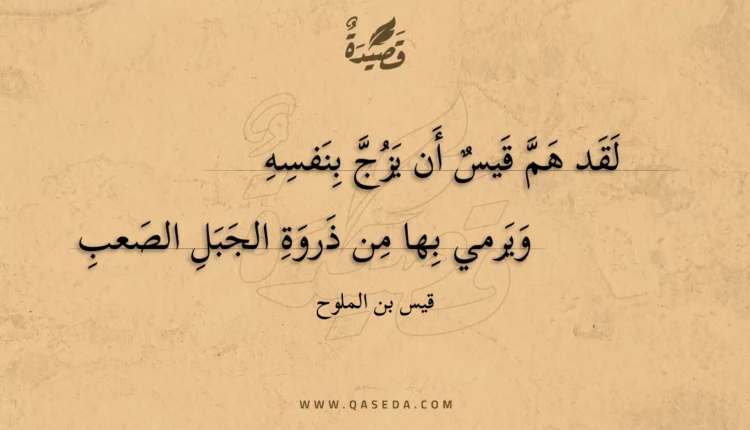 قَصِيدَةٌ
لَقَد هَمَّ قَيسٌ أَن يَزُجَّ بِنَفسِهِ
وَيَرمي بِها مِن ذَروَةِ الجَبَلِ الصَعبِ
قيس بن الملوح
WWW.QASEDA.COM